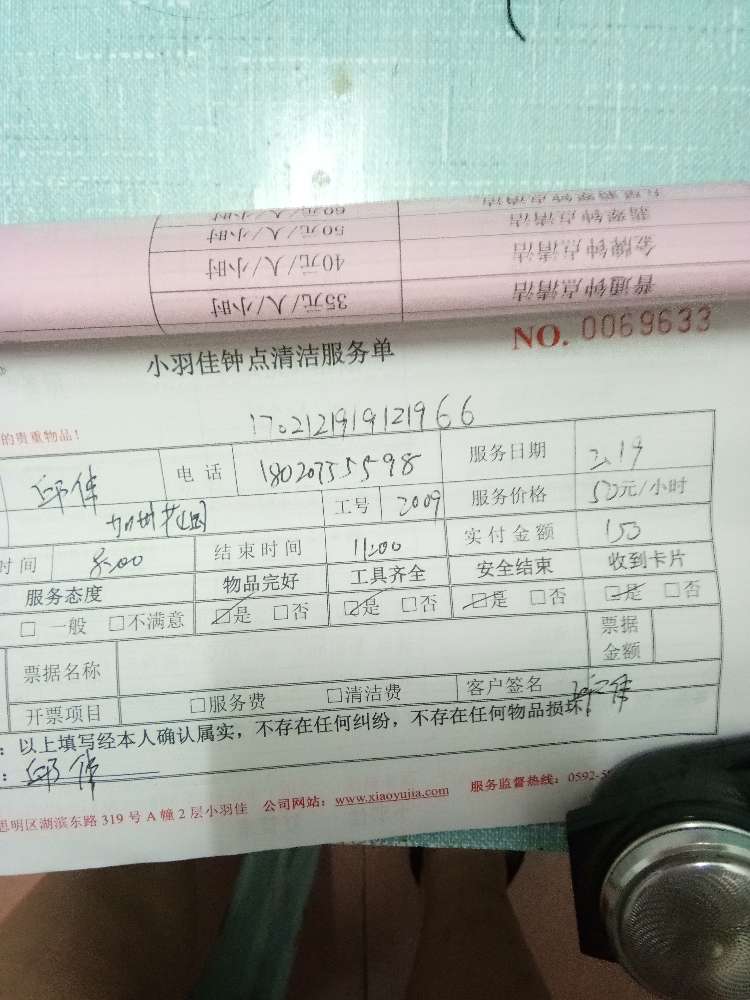 60元/人/小时
50元/人/小时 翡翠钟点清洁
40元/人/小时 金牌钟点清洁
35元/人/小时 普通钟点清洁
NO. 0069633
小羽佳钟点清洁服务单
的贵重物品!
1702121919121966
电话 服务日期 2.19
工号 2009 服务价格 元/小时
时间 8:00 结束时间 11:00 实付金额 153
服务态度 物品完好 工具齐全 安全结束 收到卡片
□ 一般 □不满意 □是 □否 □是 □否 □是 □否 □是 □否
票据名称 票据金额
开票项目 □服务费 □清洁费 客户签名
: 以上填写经本人确认属实,不存在任何纠纷,不存在任何物品损坏。
思明区湖滨东路 319 号 A 幢 2 层小羽佳 公司网站: www.xiaoyujia.com 服务监督热线: 0592-5